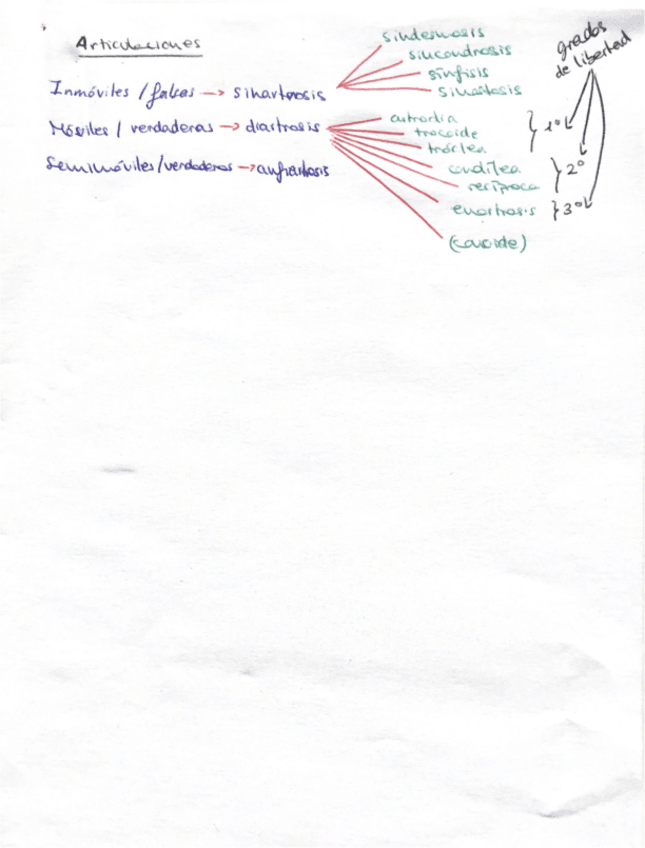 Articulaciones
Inmóviles / falsas → sinartrosis
sindesmosis
sincondrosis
sínfisis
sinostosis
Móviles / verdaderas → diartrosis
artrodia
trocoide
tróclea
condílea
recíproca
enartrosis
Semimóviles / verdaderas → anfiartrosis
grados
de libertad
} 1º
} 2º
} 3º